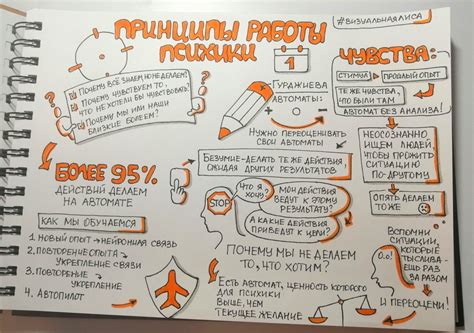 ПРИНЦИПЫ РАБОТЫ
ПСИХИКИ
#ВИЗУАЛЬНАЯЛИСА
ПОЧЕМУ ВСЁ ЗНАЕМ, НО НЕ ДЕЛАЕМ
ПОЧЕМУ ЧУВСТВУЕМ ТО,
ЧТО НЕ ХОТЕЛИ БЫ ЧУВСТВОВАТЬ?
ПОЧЕМУ МЫ ИЛИ НАШИ
БЛИЗКИЕ БОЛЕЕМ?
1
ГУРДЖИЕВА
АВТОМАТЫ:
НУЖНО ПЕРЕОЦЕНИВАТЬ
СВОИ АВТОМАТЫ
БЕЗУМИЕ-ДЕЛАТЬ ТЕ ЖЕ ДЕЙСТВИЯ,
ОЖИДАЯ ДРУГИХ РЕЗУЛЬТАТОВ
ЧУВСТВА:
СТИМУЛ
ПРОШЛЫЙ ОПЫТ
ТЕ ЖЕ ЧУВСТВА,
ЧТО БЫЛИ ТАМ
АВТОМАТ БЕЗ АНАЛИЗА!
НЕОСОЗНАННО
ИЩЕМ ЛЮДЕЙ,
ЧТОБЫ ПРОЖИТЬ
СИТУАЦИЮ
ПО-ДРУГОМУ
ОПЯТЬ ДЕЛАЕМ
ТО ЖЕ
БОЛЕЕ 95%
ДЕЙСТВИЙ ДЕЛАЕМ
НА АВТОМАТЕ
КАК МЫ ОБУЧАЕМСЯ
1 НОВЫЙ ОПЫТ → НЕЙРОННАЯ СВЯЗЬ
2. ПОВТОРЕНИЕ ОПЫТА
УКРЕПЛЕНИЕ СВЯЗИ
3. ПОВТОРЕНИЕ
УКРЕПЛЕНИЕ
4. АВТОПИЛОТ
STOP
ЧТО Я
ХОЧУ?
МОИ ДЕЙСТВИЯ
ВЕДУТ К ЭТОМУ
РЕЗУЛЬТАТУ?
А КАКИЕ ДЕЙСТВИЯ
ПРИВЕДУТ К ЦЕЛИ?
ПОЧЕМУ МЫ НЕ ДЕЛАЕМ
ТО, ЧТО ХОТИМ?
ЕСТЬ АВТОМАТ, ЦЕННОСТЬ КОТОРОГО
ДЛЯ ПСИХИКИ
ВЫШЕ, ЧЕМ
ТЕКУЩЕЕ ЖЕЛАНИЕ
ВСПОМНИ
СИТУАЦИИ,
КОТОРЫЕ
ТЫ СЛИВАЛ
РАЗ ЗА
РАЗОМ
И ПЕРЕОЦЕНИ!